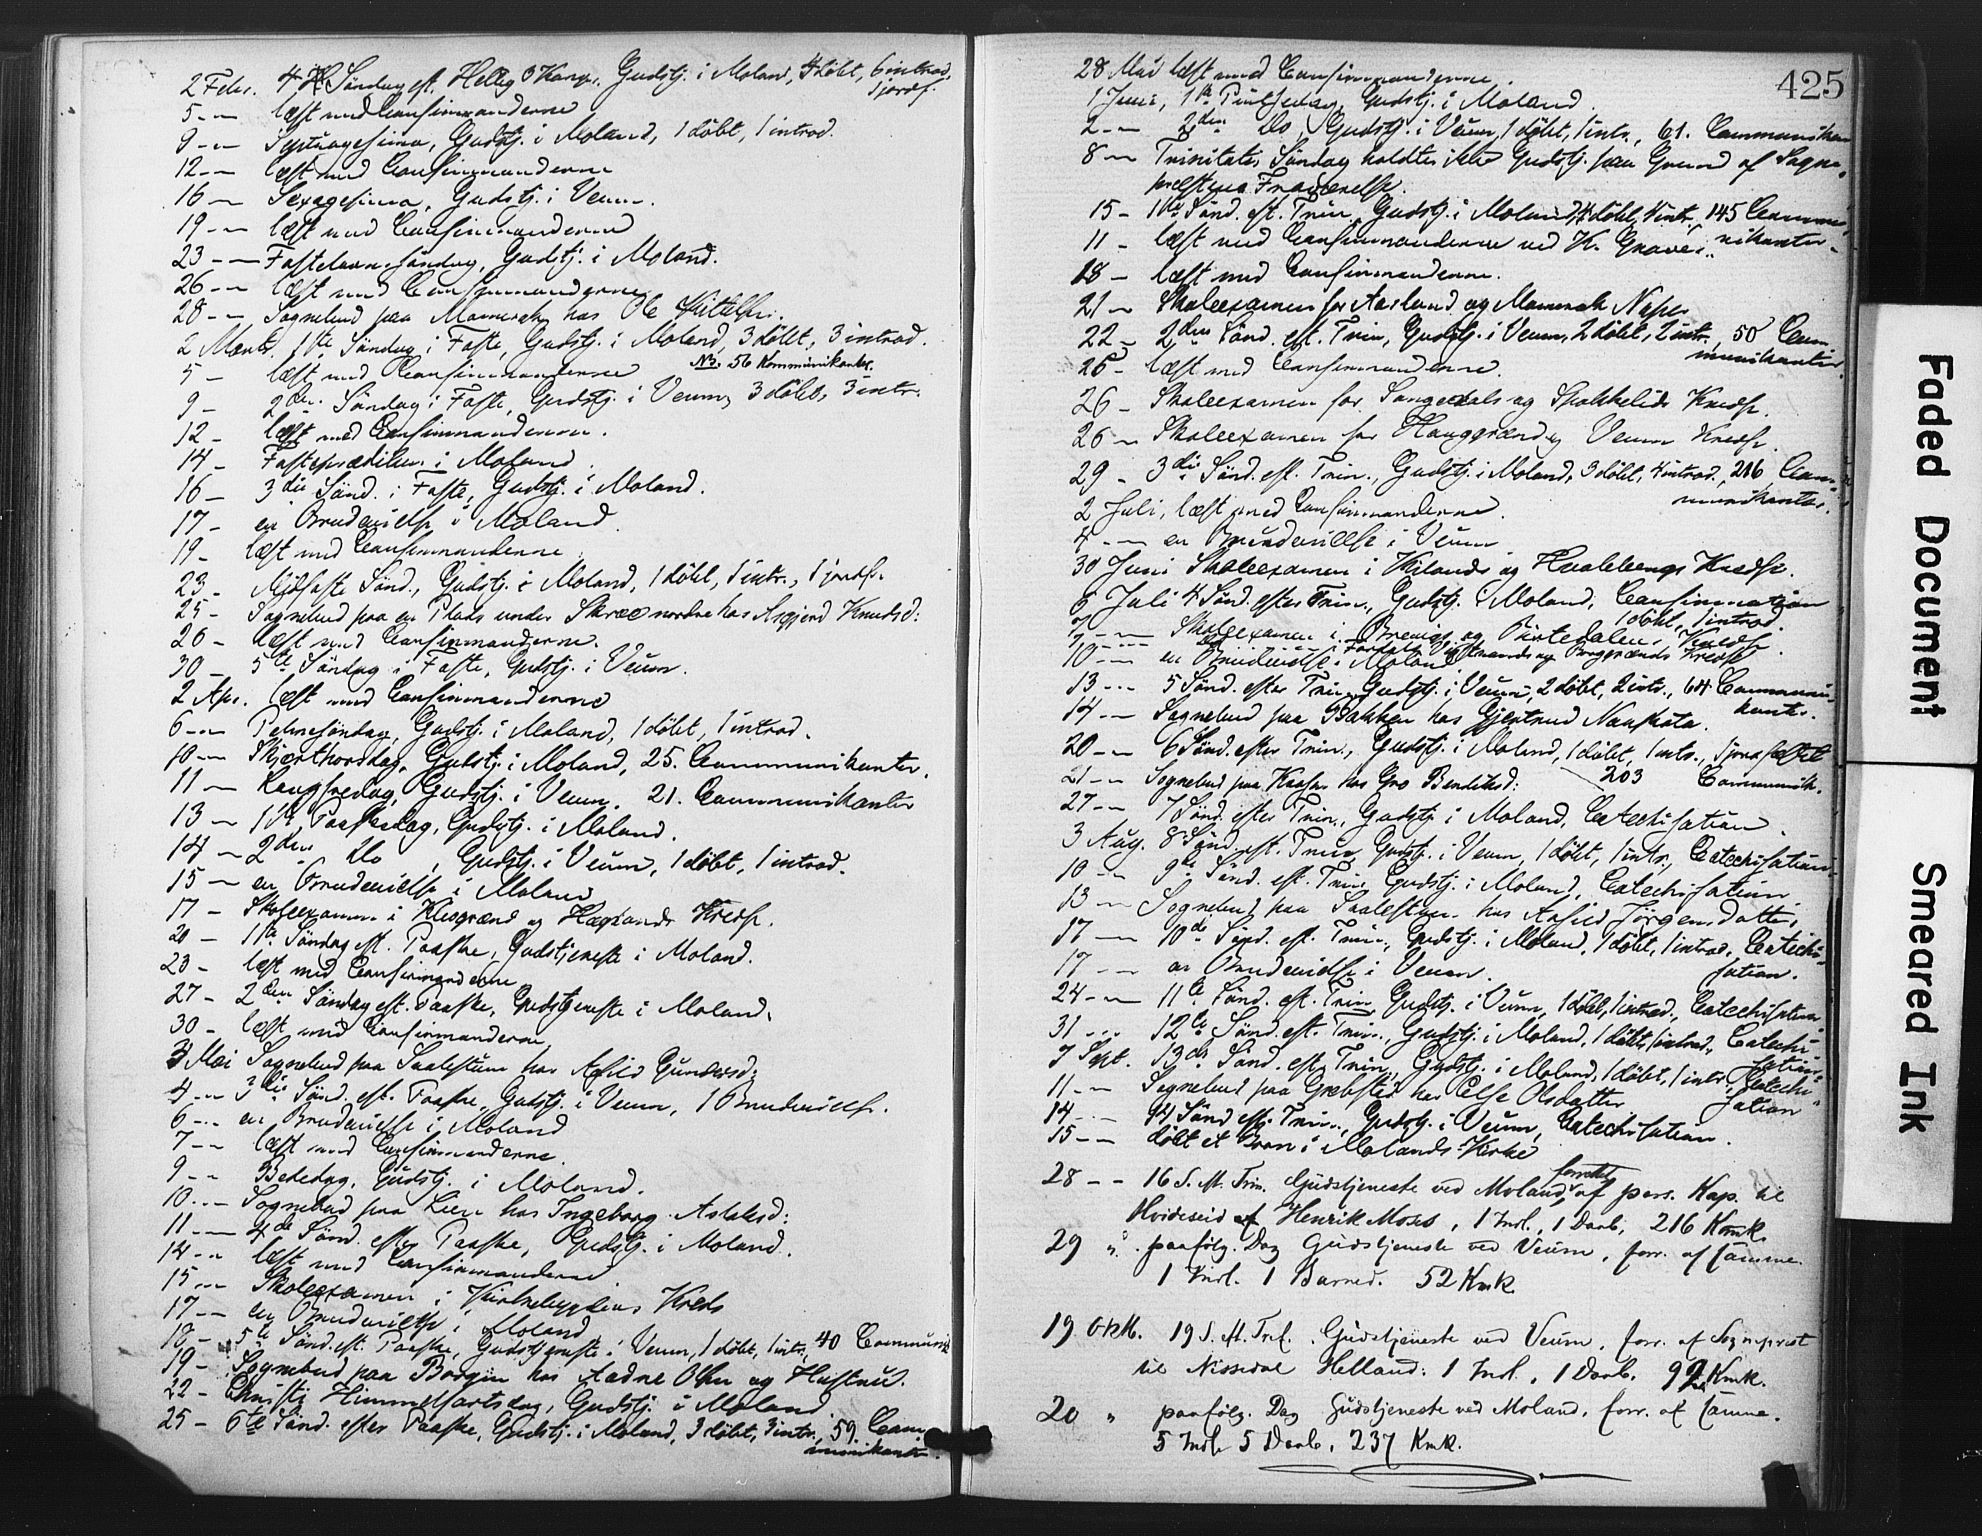 2 Febr. 4 Søndag eft. Hellig 3 Kong., Gudstj. i Moland, 4 døbt, 6 introd.
1 jordf.
5 -"- læst med Confirmanderne
9 -"- Septuagesima, Gudstj. i Moland, 1 døbt, 1 introd.
12 -"- læst med Confirmanderne
16 -"- Sexagesima, Gudstj. i Veum.
19 -"- læst med Confirmanderne
23 -"- Fastelavns søndag, Gudstj. i Moland.
26 -"- læst med Confirmanderne
28 -"- Sognebud paa Mamerak hos Ole Kittilsen.
2 Marts. 1ste Søndag i Faste, Gudstj. i Moland, 3 døbt, 3 introd.
NB. 56 Kommunikanter.
5 - læst med Confirmanderne
9 - 2den Søndag i Faste, Gudstj. i Veum, 3 døbt, 3 intr.
12 - læst med Confirmanderne.
14 - Fasteprædiken i Moland.
16 - 3die Sønd. i Faste, Gudstj. i Moland.
17 - en Brudevielse i Moland.
19 - læst med Confirmanderne
23 - Midfaste Sønd., Gudstj. i Moland, 1 døbt, 1 intr., 1 jordf.
25 - Sognebud paa en Plads under Skree nordre hos Asgjerd Knudsd:
26 - læst med Confirmanderne.
30 - 5te Søndag i Faste, Gudstj. i Veum.
2 Apr. læst med Confirmanderne
6 -"- Palmesøndag, Gudstj. i Moland, 1 døbt, 1 introd.
10 -"- Skjærthorsdag, Gudstj. i Moland, 25. Communikanter.
11 -"- Langfredag, Gudstj. i Veum. 21. Communikanter
13 -"- 1ste Paaskedag, Gudstj. i Moland.
14 -"- 2den Do, Gudstj. i Veum, 1 døbt, 1 introd.
15 -"- en Brudevielse i Moland
17 - Skoleexamen i Klesgrænd og Hægland Kredse.
20 - 1ste Søndag eft. Paaske, Gudstjeneste i Moland.
23 - læst med Confirmanderne
27 - 2den Søndag eft. Paaske, Gudstjeneste i Moland.
30 - læst med Confirmanderne
3 Mai Sognebud paa Saalestum hos Asfild Gundersd:
4 -"- 3die Sønd. eft. Paaske, Gudstj. i Veum, 1 Brudevielse.
6 -"- en Brudevielse i Moland
7 -"- læst med Confirmanderne.
9 -"- Bededag, Gudstj. i Moland.
10 -"- Sognebud paa Lien hos Ingeborg Aslaksd:
11 -"- 4de Sønd. efter Paaske, Gudstj. i Moland.
14 -"- læst med Confirmanderne
15 -"- Skoleexamen i Kirkebygdens Kreds
17 -"- en Brudevielse i Moland
18 - 5te Sønd. eft. Paaske, Gudstjeneste i Veum, 1 døbt, 1 intr., 40 Communik
19 - Sognebud paa Borgin hos Aadne Olsen og Hustru.
22 - Christi Himmelfartsdag, Gudstj. i Moland
25 - 6te Sønd. efter Paaske, Gudstj. i Moland, 3 døbt, 3 intr., 59. Com-
munikanter.
425
28 Mai læst med Confirmanderne.
1 Juni, 1ste Pintsedag, Gudstj. i Moland.
2 -"- 2den Do, Gudstj. i Veum, 1 døbt, 1 intr., 61. Communikan
8 -"- Trinitatis Søndag holdtes ikke Gudstj. paa Grund af Sogne-
præstens Fraværelse.
15 - 1ste Sønd. eft. Trin, Gudstj. i Moland, 4 døbt, 4 intr. 145 Commu-
nikanter.
11 - læst med Confirmanderne ved K. Graver.
18 - læst med Confirmanderne.
21 -"- Skoleexamen for Aarland og Mamerak
22 - 2den Sønd. eft. Trin, Gudstj. i Veum, 2 døbt, 2 intr., 50 Com-
munikanter.
25 - læst med Confirmanderne.
26 - Skoleexamen for Songedals og Spokkelids Kredse.
26 -"- Skoleexamen for Hauggrænd og Veum Kredse
29 - 3die Sønd. eft. Trin., Gudstj. i Moland, 3 døbt, 4 introd., 216 Com-
munikanter.
2 Juli, læst med Confirmanderne.
4 -"- en Brudevielse i Veum
30 Juni Skoleexamen i Kilands og Hvalebergs Kredse.
6 Juli 4 Sønd. efter Trin., Gudstj. i Moland, Confirmation
1 døbt, 1 introd.
7 -"- Skoleexamen i Brevigs og Birtedalens Kredse.
10 -"- en Brudevielse i Moland.
13 -"- 5 Sønd. efter Trin, Gudstj. i Veum, 2 døbt, 2 intr., 64 Communi-
kanter.
14 -"- Sognebud paa Bakken hos Gjertrud
20 -"- 6 Sønd. efter Trin., Gudstj. i Moland, 1 døbt, 1 intr., 1 jordfæstet
203 Communik.
21 -"- Sognebud paa Kaasen hos Gro Bendiksd:
27 -"- 7 Sønd. efter Trin., Gudstj. i Moland, Catechisation.
3 Aug. 8 Sønd. eft. Trin, Gudstj. i Veum, 1 døbt, 1 intr., Catechisation.
10 -"- 9de Sønd. eft. Trin, Gudstj. i Moland, Catechisation.
13 -"- Sognebud paa Saalestum hos Aasild Jørgensdatter.
17 -"- 10de Sønd. eft. Trin., Gudstj. i Moland, 1 døbt, 1 introd., Catechi-
sation.
17 -"- en Brudevielse i Veum.
24 -"- 11te Sønd. eft. Trin, Gudstj. i Veum, 1 døbt, 1 introd., Catechisation.
31 -"- 12te Sønd. eft. Trin., Gudstj. i Moland, 1 døbt, 1 introd., Catechi-
sation.
7 Sept. 13de Sønd. eft. Trin, Gudstj. i Moland, 1 døbt, 1 intr., Catechi-
sation
11 -"- Sognebud paa Græbsted hos Else Olsdatter
14 -"- 14 Sønd eft. Trin., Gudstj. i Veum, Catechisation.
15 -"- døbt et Barn i Molands Kirke
28 -- 16 S. eft. Trin. Gudstjeneste ved Moland, forrettet af pers. Kap. til
Hvideseid Henrik Moses, 1 Indl., 1 Daab, 216 Kmk.
29 " paafølg. Dag Gudstjeneste ved Veum, forr. af samme.
1 Indl. 1 Barned. 52 Kmk
19 Oktb. 19 S. eft. Tref. Gudstjeneste ved Veum, forr. af Sogneprest
til Nissedal Helland: 1 Indl., 1 Daab, 92 Kmk.
20 " paafølg. Dag Gudstjeneste ved Moland, forr. af samme.
5 Indl. 5 Daab, 237 Kmk.
Faded Document
Smeared Ink